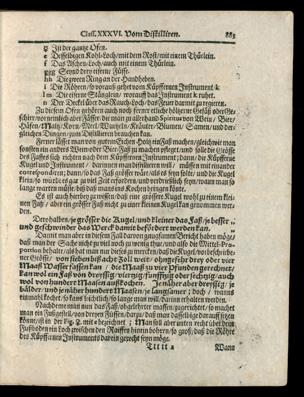 Class. XXXVI. Vom Distilliren. 883
g Ist der gantze Ofen.
e Desselbigen Kohl-Loch/ mit dem Rost/ mit einem Thürlein.
f Das Aschen-Loch/ auch mit einem Thürlein.
ggg Seynd drey eiserne Füsse.
hh Die zween Ring an der Handheben.
i Die Röhren/ so vorauß gehet vom Küpffernen Instrument k
lm Die eiserne Stänglein/ worauff das Instrument k ruhet.
n Der Deckel über das Rauch-Loch/ das Feuer darmit zu regieren.
Zu diesem Ofen gehören auch noch ferner etliche höltzerne Gefäß
dergleichen Dingen/ zum Distilliren brauchen kan.
Ferner lässet man von gutem Eichen-Holtz ein Faß machen/ gleichwie man
sonsten ein anders Wein oder Bier-Faß zu machen pfleget/ und solle die Grösse
des Fasses sich richten nach dem Küpffernen Instrument; dann/ die Küpfferne
Kugel und Instrument/ darinnen man distilliren will/ müssen mit einander
correspondiren; dann/ so das Faß grösser wäre als es seyn solte/ und die Kugel
klein/ so würde es gar zu viel Zeit erfordern/ und verdrießlich seyn/ wann man so
lange warten müste/ biß daß man es ins Kochen bringen könte.
Es ist auch hierbey zu wissen/ daß eine grössere Kugel wohl zu einem kleinen
Faß/ aber ein grosses Faß nicht zu einer kleinen Kugel kan genommen werden.
Derohalben/ je grösser die Kugel/ und kleiner das Faß/ je besser
und geschwinder das Werck damit befördert werden kan.
Damit man aber in diesem Fall darvon gungsamen Bericht haben möge/
daß man der Sache nicht zu viel noch zu wenig thue/ und also die Mittel-Proportion
behalte/
ner Grösse/ von sieben biß acht Zoll weit/ ohngefehr drey oder vier
Maaß Wasser fassen kan/
Kan wol ein Faß von dreyssig/ viertzig/ fünfftzig oder sechtzig/ auch
wol von hundert Maasen außkochen. Je näher aber dreyssig/ je
bälder/ und je näher hundert Maasen/ je langsamer; doch/ wanns
einmahl kochet/ so kans so hitzlich/ so lange man will/ darinn erhalten werden.
Nachdeme nun man das Faß/ obgelehrter massen zugerichtet/ so machet
man ein Fußgestell/ von dreyen Füssen/ darzu/ daß man dasselbige darauff setzen
könne/ ist in der Fig. 2. mit o bezeichnet; Man soll aber unten recht über dem
Fußboden ein Loch zwischen den Raiffen hinein bohren/ so groß/ daß die Röhre
des Küpffernen Instruments darein gerecht seyn möge.
Ttttt 2 Wann